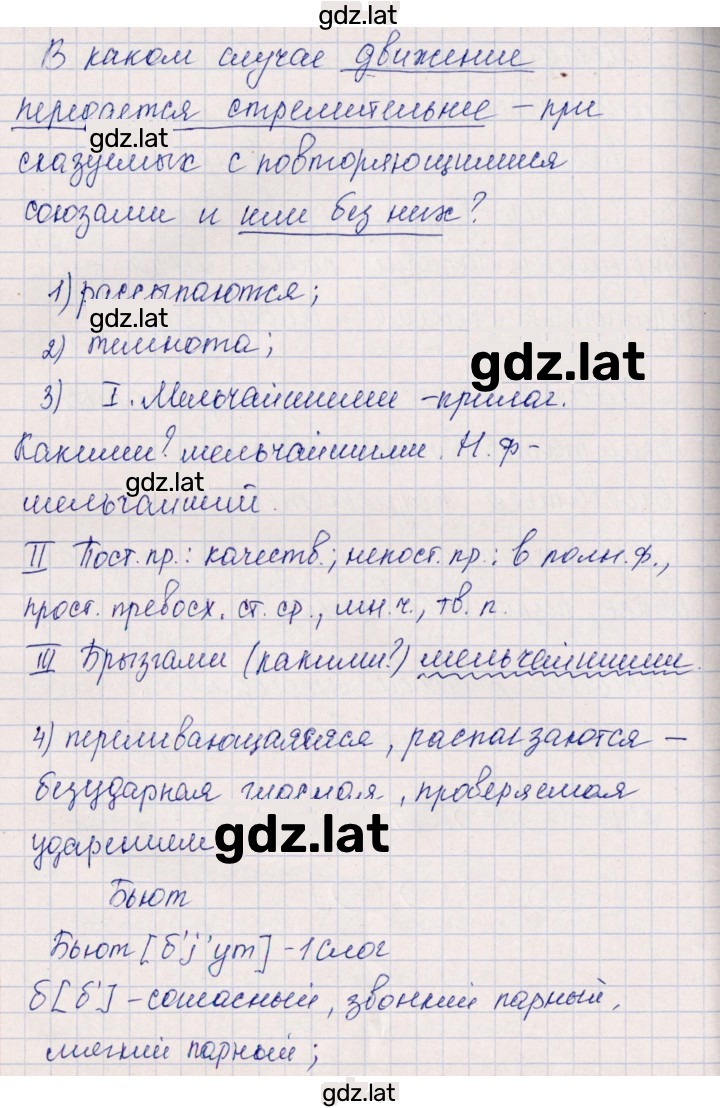 gdz.lat
В каком случае движение
передается стремительнее – при
gdz.lat
сказуемых с повторяющимися
союзами и или без них?
1) рассыпаются;
gdz.lat
2) темнота;
gdz.lat
3) I. Мельчайшими – прилаг.
Какими? мельчайшими. Н.ф –
gdz.lat
мельчайший.
II Пост. пр.: качеств.; непост. пр.: в полн. ф.,
прост. превосх. ст. ср., мн. ч., тв. п.
III Брызгами (какими?) мельчайшими.
4) расползаются –
безударная гласная, проверяемая
ударением
gdz.lat
Бьют
Бьют [б'j'ут] – 1 слог
б [б'] – согласный, звонкий парный,
мягкий парный;
gdz.lat